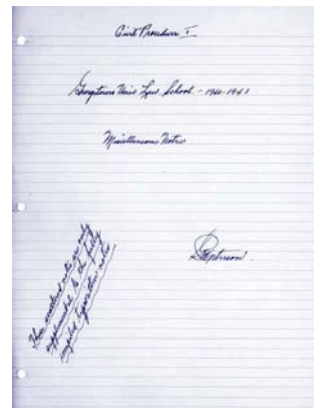 Civil Procedure I
Georgetown Univ Law School - 1940-1941
Miscellaneous Notes
These notes are only
supplemental to the fully
compiled typewritten notes